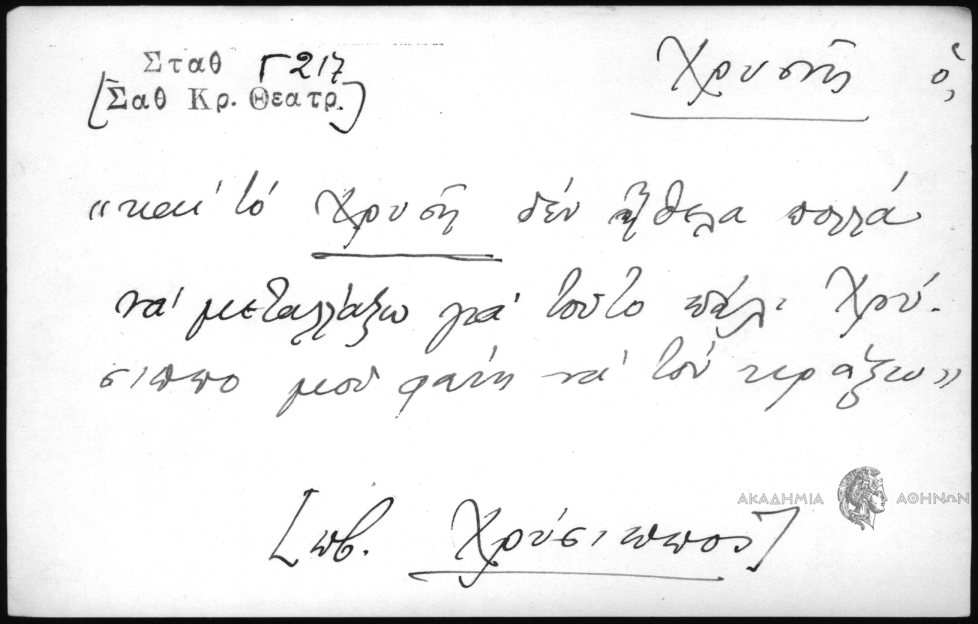 Σταθ Γ 217
[Σαθ Κρ. Θεατρ.]
Χρυσῆς ὁ,
"καὶ τὸ Χρυσῆ δὲν ἤθελα πολλὰ
νὰ μεταλλάξω γιὰ τοῦτο πάλι Χρύ-
σιππο μοῦ φάνη νὰ τὸν κράξω"
[πβ. Χρύσιππος]
ΑΚΑΔΗΜΙΑ ΑΘΗΝΩΝ